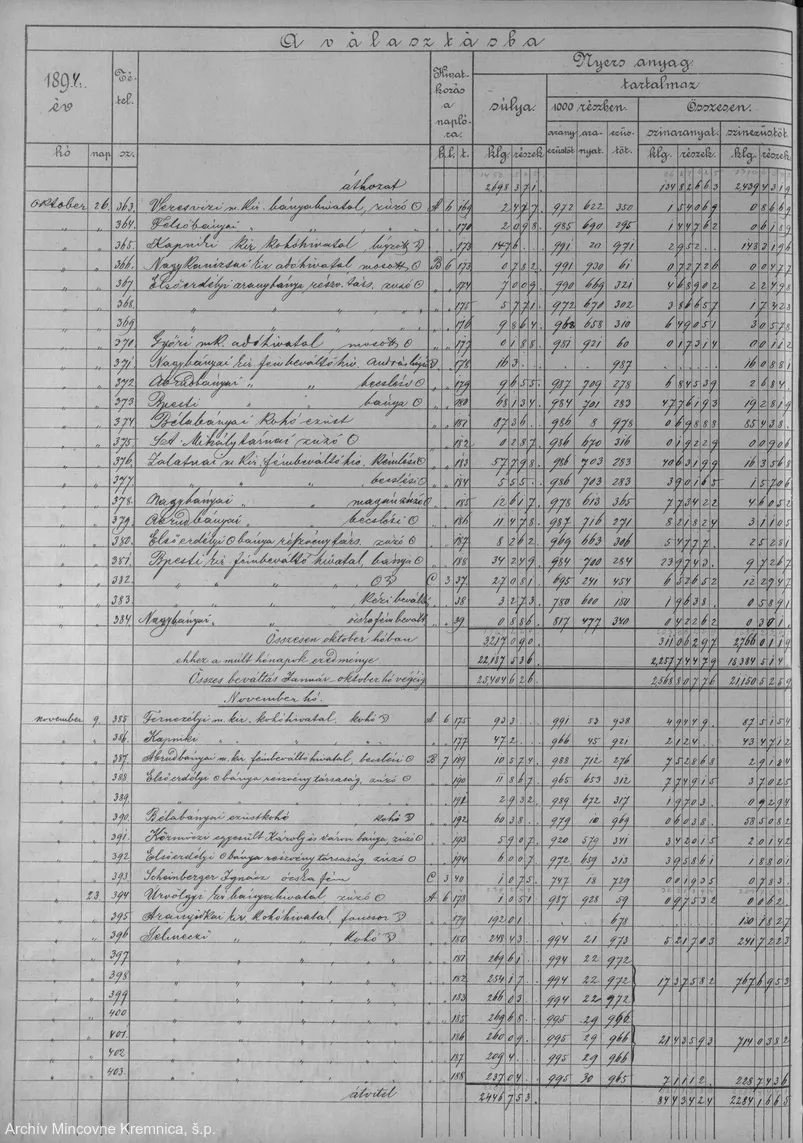 A választásba
1894. év
Tétel. sz.
Hivatkozás a naplóra.
Nyers anyag
súlya.
tartalmaz
1000 részben.
Összesen.
arany ezüstöt
aranyat
ezüstöt.
színaranyat.
színezüstöt
hó nap kl. t. klg. részek klg. részek. klg. részek.
áthozat 2698 371. 134 82663 2439 4319
Oktober 26. 363. Veresvizi m. kir. bányahivatal, zúzó A 6 169 2 477 972 622 350 1 54069 0 8669
" " 364. Felsőbányai " " " 170 2 098 985 690 295 1 44762 0 6189
" " 365. Kapniki kir. kohóhivatal " 173 147 6 991 20 971 2 952 143 3196
" " 366. Nagykanizsai kir. adóhivatal mosott B 6 173 0 782 991 930 61 0 72726 0 0477
" " 367. Elsőerdélyi aranybánya részv. társ. zúzó " 174 7 009 990 669 321 4 68902 2 2498
" " 368. " " " " 175 5 771 972 670 302 3 86657 1 7428
" " 369 " " " " 176 9 864 968 658 310 6 49051 3 0578
" " 370 Győri mk. adóhivatal mosott " 177 0 188 981 921 60 0 17314 0 0112
" " 371 Nagybányai kir. fémbeváltó hiv. " 178 16 3 987 16 0881
" " 372 Abrudbányai " " becslési " 179 9 655 987 709 278 6 84539 2 684
" " 373 Bpesti " " bánya " 180 68 134 984 701 283 47 76193 19 2819
" " 374 Bélabányai kohó ezüst " 181 87 36 986 8 978 0 69888 85 438
" " 375. Szt. Mihálytárnai zúzó " 182 0 287 986 670 316 0 19229 0 0906
" " 376. Zalatnai m. kir. fémbeváltó hiv. kémlési " 183 57 798 986 703 283 40 63199 16 3568
" " 377 " " becslési " 184 5 55 986 703 283 3 90165 1 5706
" " 378. Nagybányai " " magán zúzó " 185 12 617 978 613 365 7 73422 4 6052
" " 379. Abrudbányai " becslési " 186 11 478 987 716 271 8 21824 3 1105
" " 380. Elsőerdélyi bánya részvénytárs. zúzó " 187 8 262 969 663 306 5 4777 2 5281
" " 381. Bpesti kir. fémbeváltó hivatal, bánya " 188 34 249 984 700 284 23 9743 9 7267
" " 382. " " " C 3 37 27 081 695 241 454 6 52652 12 2947
" " 383. " " " kézi bevált. " 38 3 273 780 600 180 1 9638 0 5891
" " 384. Nagybányai " ócska fém bevált. " 39 0 886 817 477 340 0 42262 0 301
Összesen oktober hóban 3217 090 311 06297 2766 0119
ehhez a múlt hónapok eredménye 22,187 536 2,257 74479 18384 514
Összes beváltás Január-oktober hó végéig 25,404 626 2568 80776 21150 5259
November hó.
november 9. 385. Fernezélyi m. kir. kohóhivatal, kohó A 6 175 93 3 991 53 938 4 9449 87 5154
" " 386. Kapniki " " " " 177 47 2 966 45 921 2 124 43 4712
" " 387. Abrudbányai m. kir. fémbeváltóhivatal, becslési B 7 189 10 574 988 712 276 7 52868 2 9184
" " 388 Elsőerdélyi bánya részvény társaság, zúzó " 190 11 867 965 653 312 7 74915 3 7025
" " 389. " " " " 191 2 932 989 672 317 1 9703 0 9294
" " 390. Bélabányai ezüstkohó kohó " 192 60 38 979 10 969 0 6038 58 5082
" " 391. Körmöczi egyesült Károly és város bánya, zúzó " 193 5 907 920 579 341 3 42015 2 0142
" " 392. Elsőerdélyi bánya részvény társaság zúzó " 194 6 007 972 659 313 3 95861 1 8801
" " 393 Scheinberger Ignácz ócska fém C 3 40 1 075 747 18 729 0 01935 0 783
" 23. 394 Úrvölgyi kir. bányahivatal, zúzó A 6 178 1 051 987 928 59 0 97532 0 062
" " 395 Aranyidkai kir. kohóhivatal foncsor " 179 192 01 678 130 1827
" " 396 Selmeczi " " kohó " 180 248 43 994 21 973 5 21703 241 7223
" " 397 " " " " 181 269 61 994 22 972
" " 398 " " " " 182 254 17 994 22 972 17 37582 767 6953
" " 399 " " " " 183 266 03 994 22 972
" " 400 " " " " 185 269 68 995 29 966
" " 401. " " " " 186 260 09 995 29 966 21 43593 714 0382
" " 402 " " " " 187 209 4 995 29 966
" " 403. " " " " 188 237 04 995 30 965 7 1112 228 7436
átvitel 2446 753 344 3424 2284 1665
Archív Mincovne Kremnica, š.p.